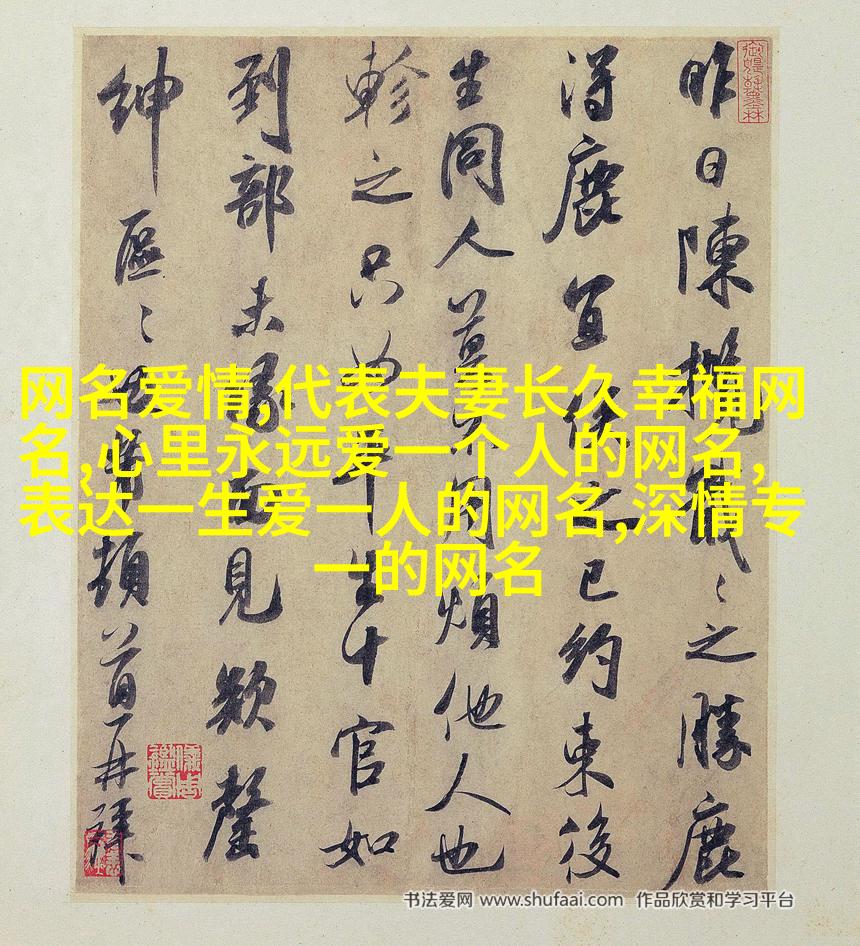 昨日陳攬之勝鹿
得鹿宜之已約束後
生同人莫不用煩他人也
軫之只生十官如
到部未見欵罄
紳區〻頓首再拜
网名爱情,代表夫妻长久幸福网
名,心里永远爱一个人的网名,
表达一生爱一人的网名,深情专
一的网名
书法爱网 www.shufaai.com 作品欣赏和学习平台